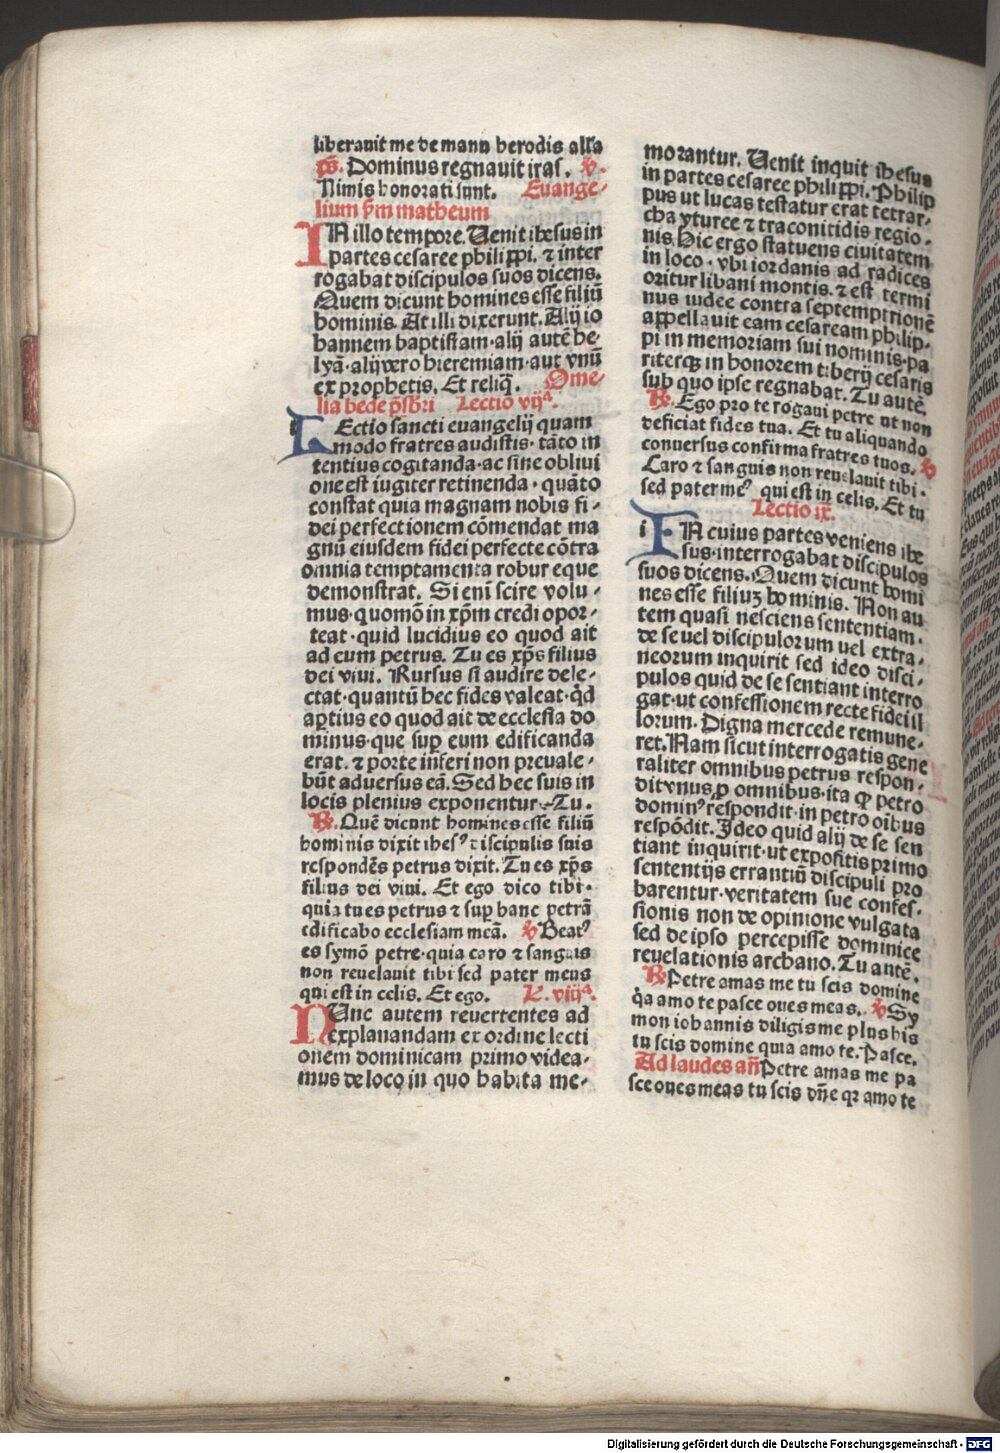 liberauit me de manu herodis alľa
ps̄. Dominus regnauit iras . ꝟ.
Nimis honorati sunt. Euange-
lium ẜm matheum
IN illo tempore. Uenit ihesus in
partes cesaree philippi. ⁊ inter
rogabat discipulos suos dicens.
Quem dicunt homines esse filiū
hominis. At illi dixerunt. Alij io
hannem baptistam·alij autē he-
lyā·alij vero hieremiam·aut vnū
ex prophetis. Et reliq̄. Ome-
lia bede p̄sbri Lectio vijᵃ.
LEctio sancti euangelij quam
modo fratres audistis·tāto in
tentius cogitanda·ac sine obliui
one est iugiter retinenda·quāto
constat quia magnam nobis fi-
dei perfectionem cōmendat ma
gnū eiusdem fidei perfecte cōtra
omnia temptamenta robur eque
demonstrat. Si eni scire volu-
mus·quomō in xp̄m credi opor-
teat·quid lucidius eo quod ait
ad eum petrus. Tu es xp̄s filius
dei viui. Rursus si audire dele-
ctat·quantū hec fides valeat·qd̄
apertius eo quod ait de ecclesia do
minus·que sup̱ eum edificanda
erat. ⁊ porte inferi non preuale-
būt aduersus eā. Sed hec suis in
locis plenius exponentur. Tu.
℟. Quē dicunt homines esse filiū
hominis dixit ihesꝰ discipulis suis
respondēs petrus dixit. Tu es xp̄s
filius dei viui. Et ego dico tibi·
quia tu es petrus ⁊ sup̱ hanc petrā
edificabo ecclesiam meā. ꝟ Beatꝰ
es symō petre·quia caro ⁊ sanguis
non reuelauit tibi sed pater meus
qui est in celis. Et ego. L. viijᵃ.
NUnc autem reuertentes ad
explanandam ex ordine lecti
onem dominicam primo videa-
mus de loco in quo habita me-
morantur. Uenit inquit ihesus
in partes cesaree philippi. Philip
pus ut lucas testatur erat tetrar-
cha yturee ⁊ traconitidis regio-
nis. Hic ergo statuens ciuitatem
in loco·vbi iordanis ad radices
oritur libani montis. ⁊ est termi
nus iudee contra septemptrionē
appellauit eam cesaream philip-
pi in memoriam sui nominis·pa
riterqꝫ in honorem tiberij cesaris
sub quo ipse regnabat. Tu autē.
℟. Ego pro te rogaui petre ut non
deficiat fides tua. Et tu aliquando
conuersus confirma fratres tuos. ꝟ
Caro ⁊ sanguis non reuelauit tibi·
sed pater meꝰ qui est in celis. Et tu
Lectio ix.
i IN cuius partes veniens ihe
sus·interrogabat discipulos
suos dicens. Quem dicunt homi
nes esse filiuꝫ hominis. Non au
tem quasi nesciens sententiam·
de se uel discipulorum uel extra-
neorum inquirit sed ideo disci-
pulos quid de se sentiant interro
gat·ut confessionem recte fidei il
lorum. Digna mercede remune-
ret. Nam sicut interrogatis gene
raliter omnibus petrus respon-
dit vnus ꝓ omnibus·ita qꝫ petro
dominꝰ respondit·in petro oībus
respōdit. Ideo quid alij de se sen
tiant inquirit·ut expositis primo
sententijs errantiū discipuli pro
barentur·veritatem sue confes-
sionis non de opinione vulgata
sed de ipso percepisse dominice
reuelationis archano. Tu autē.
℟ Petre amas me tu scis domine
qa amo te pasce oues meas. ꝟ Sy
mon iohannis diligis me plus his
tu scis domine quia amo te. Pasce.
Ad laudes an̄ Petre amas me pa
sce oues meas tu scis dn̄e qꝛ amo te
Digitalisierung gefördert durch die Deutsche Forschungsgemeinschaft - DFG